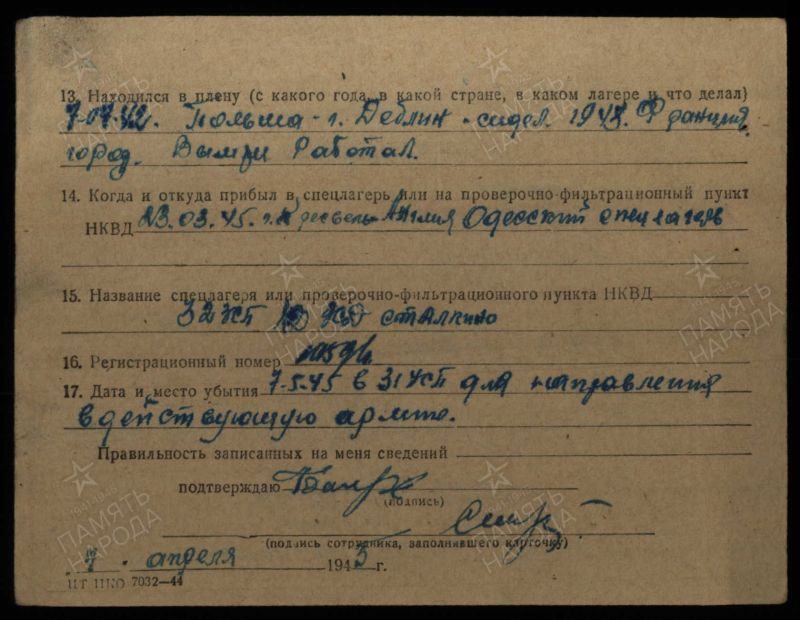 13. Находился в плену (с какого года, в какой стране, в каком лагере и что делал)
7-07.42. Польша - г. Деблин - сидел. 1943. Франция
город. Работал.
14. Когда и откуда прибыл в спецлагерь или на проверочно-фильтрационный пункт
НКВД 23.03.45. Англия Одесский спецлагерь
15. Название спецлагеря или проверочно-фильтрационного пункта НКВД
32 сталино
16. Регистрационный номер
17. Дата и место убытия 7-5.45 в для направления
в действующую армию.
Правильность записанных на меня сведений
подтверждаю
(подпись)
(подпись сотрудника, заполнившего карточку)
апреля 1945 г.
ЦТ НКО 7032—44
ПАМЯТЬ НАРОДА